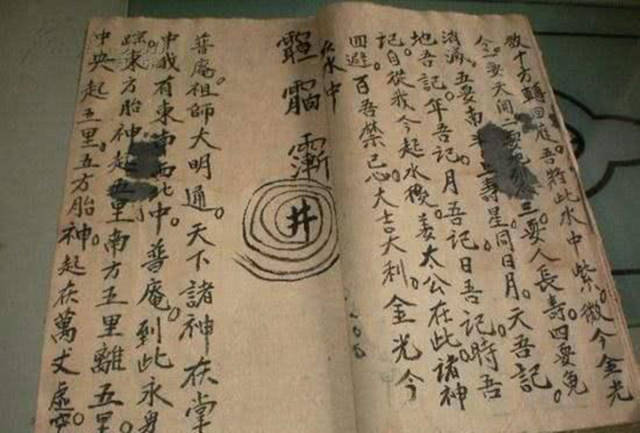 十方轉回 吾將此水中 紫微今金光
令。一要天開二要 三要人長壽。四要
消滿。五要南 壽星。同日月。天吾記。
地吾記。年吾記。月吾記日吾記。時吾
記。自從我今起水後。姜太公在此諸神
回避。百吾禁忌。大吉大利。金光今
水中
井
普庵祖師大明通。天下諸神在掌
中。我有東南西北中。普庵到此永身
踪。東方胎神起五里南方五里離五里。
中央起五里。五方胎神。起在萬丈虛空。